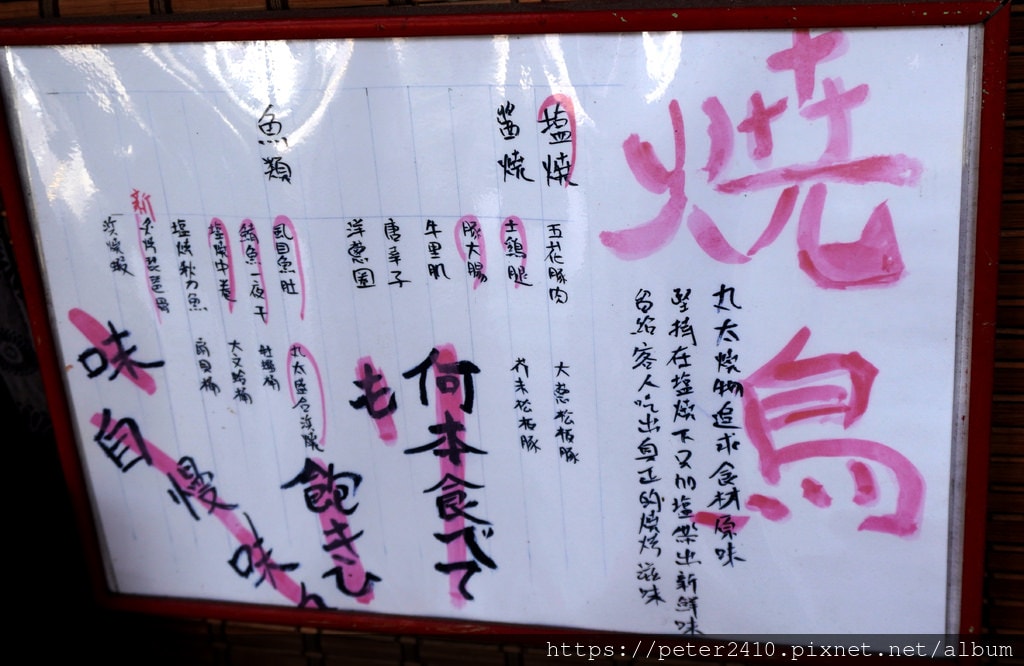 焼鳥
丸太燒物追求食材原味
堅持在塩燒下又加塩帶出新鮮味
留給客人吃出真正的燒烤滋味
塩燒
醬燒
五花豚肉
土鷄腿
豚大腸
牛里肌
唐辛子
洋蔥圈
大蔥松板豚
芥末松板豚
何本食べて
も
飽きむ
魚類
虱目魚肚
鯖魚一夜干
塩燒中卷
塩燒秋刀魚
新
炭燒蝦
丸太盛合
大文蛤桶
扇貝桶
味自慢味
https://peter2410.pixnet.net/album